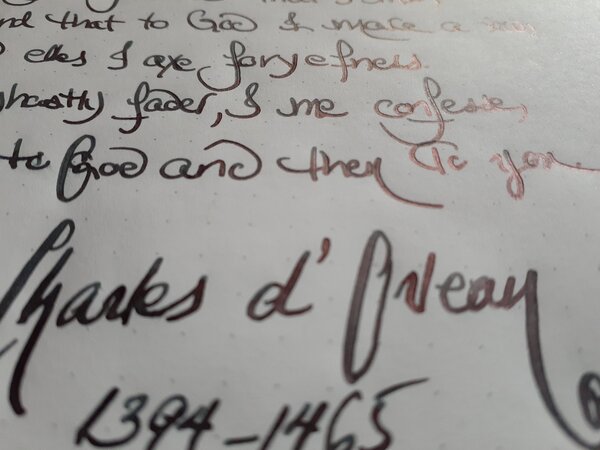 nd that to God I make a
elles I axe foryefness
hostly fader, I me confesse,
to God and then to you
Charles d'Orleans
1394-1465